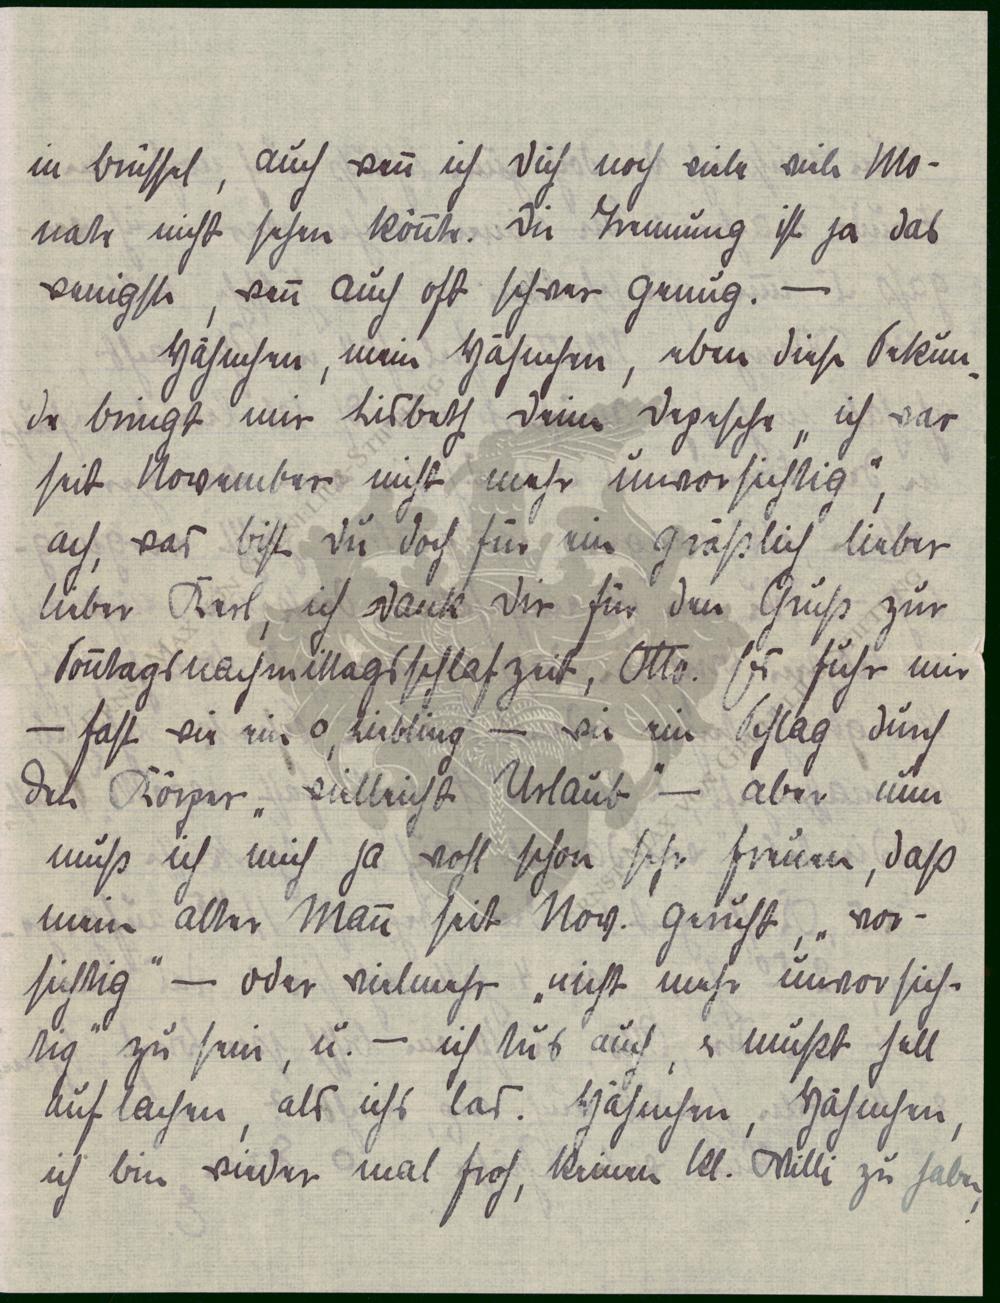 in Brüssel, auch weñ ich Dich noch viele viele Mo-
nate nicht sehen köñte. Die Trennung ist ja das
wenigste, weñ auch oft schwer genug. —
Hähnchen, mein Hähnchen, eben diese Sekun-
de bringt mir Lisbeth Deine Depesche „ich war
seit November nicht mehr unvorsichtig“,
ach, was bist Du doch für ein gräßlich lieber
lieber Kerl, ich dank Dir für den Gruß zur
Soñtagsnachmittagsschlafzeit, Otto. Es fuhr mir
— fast wie ein o, Liebling — wie ein Schlag durch
den Körper „vielleicht Urlaub“ — aber nun
muß ich mich ja wohl schon sehr freuen, daß
mein alter Mañ seit Nov. geruht, „vor-
sichtig“ — oder vielmehr „nicht mehr unvorsich-
tig“ zu sein, u. — ich tus auch, mußt hell
auflachen, als ichs las. Hähnchen, Hähnchen,
ich bin wieder mal froh, keinen kl. Willi zu haben,